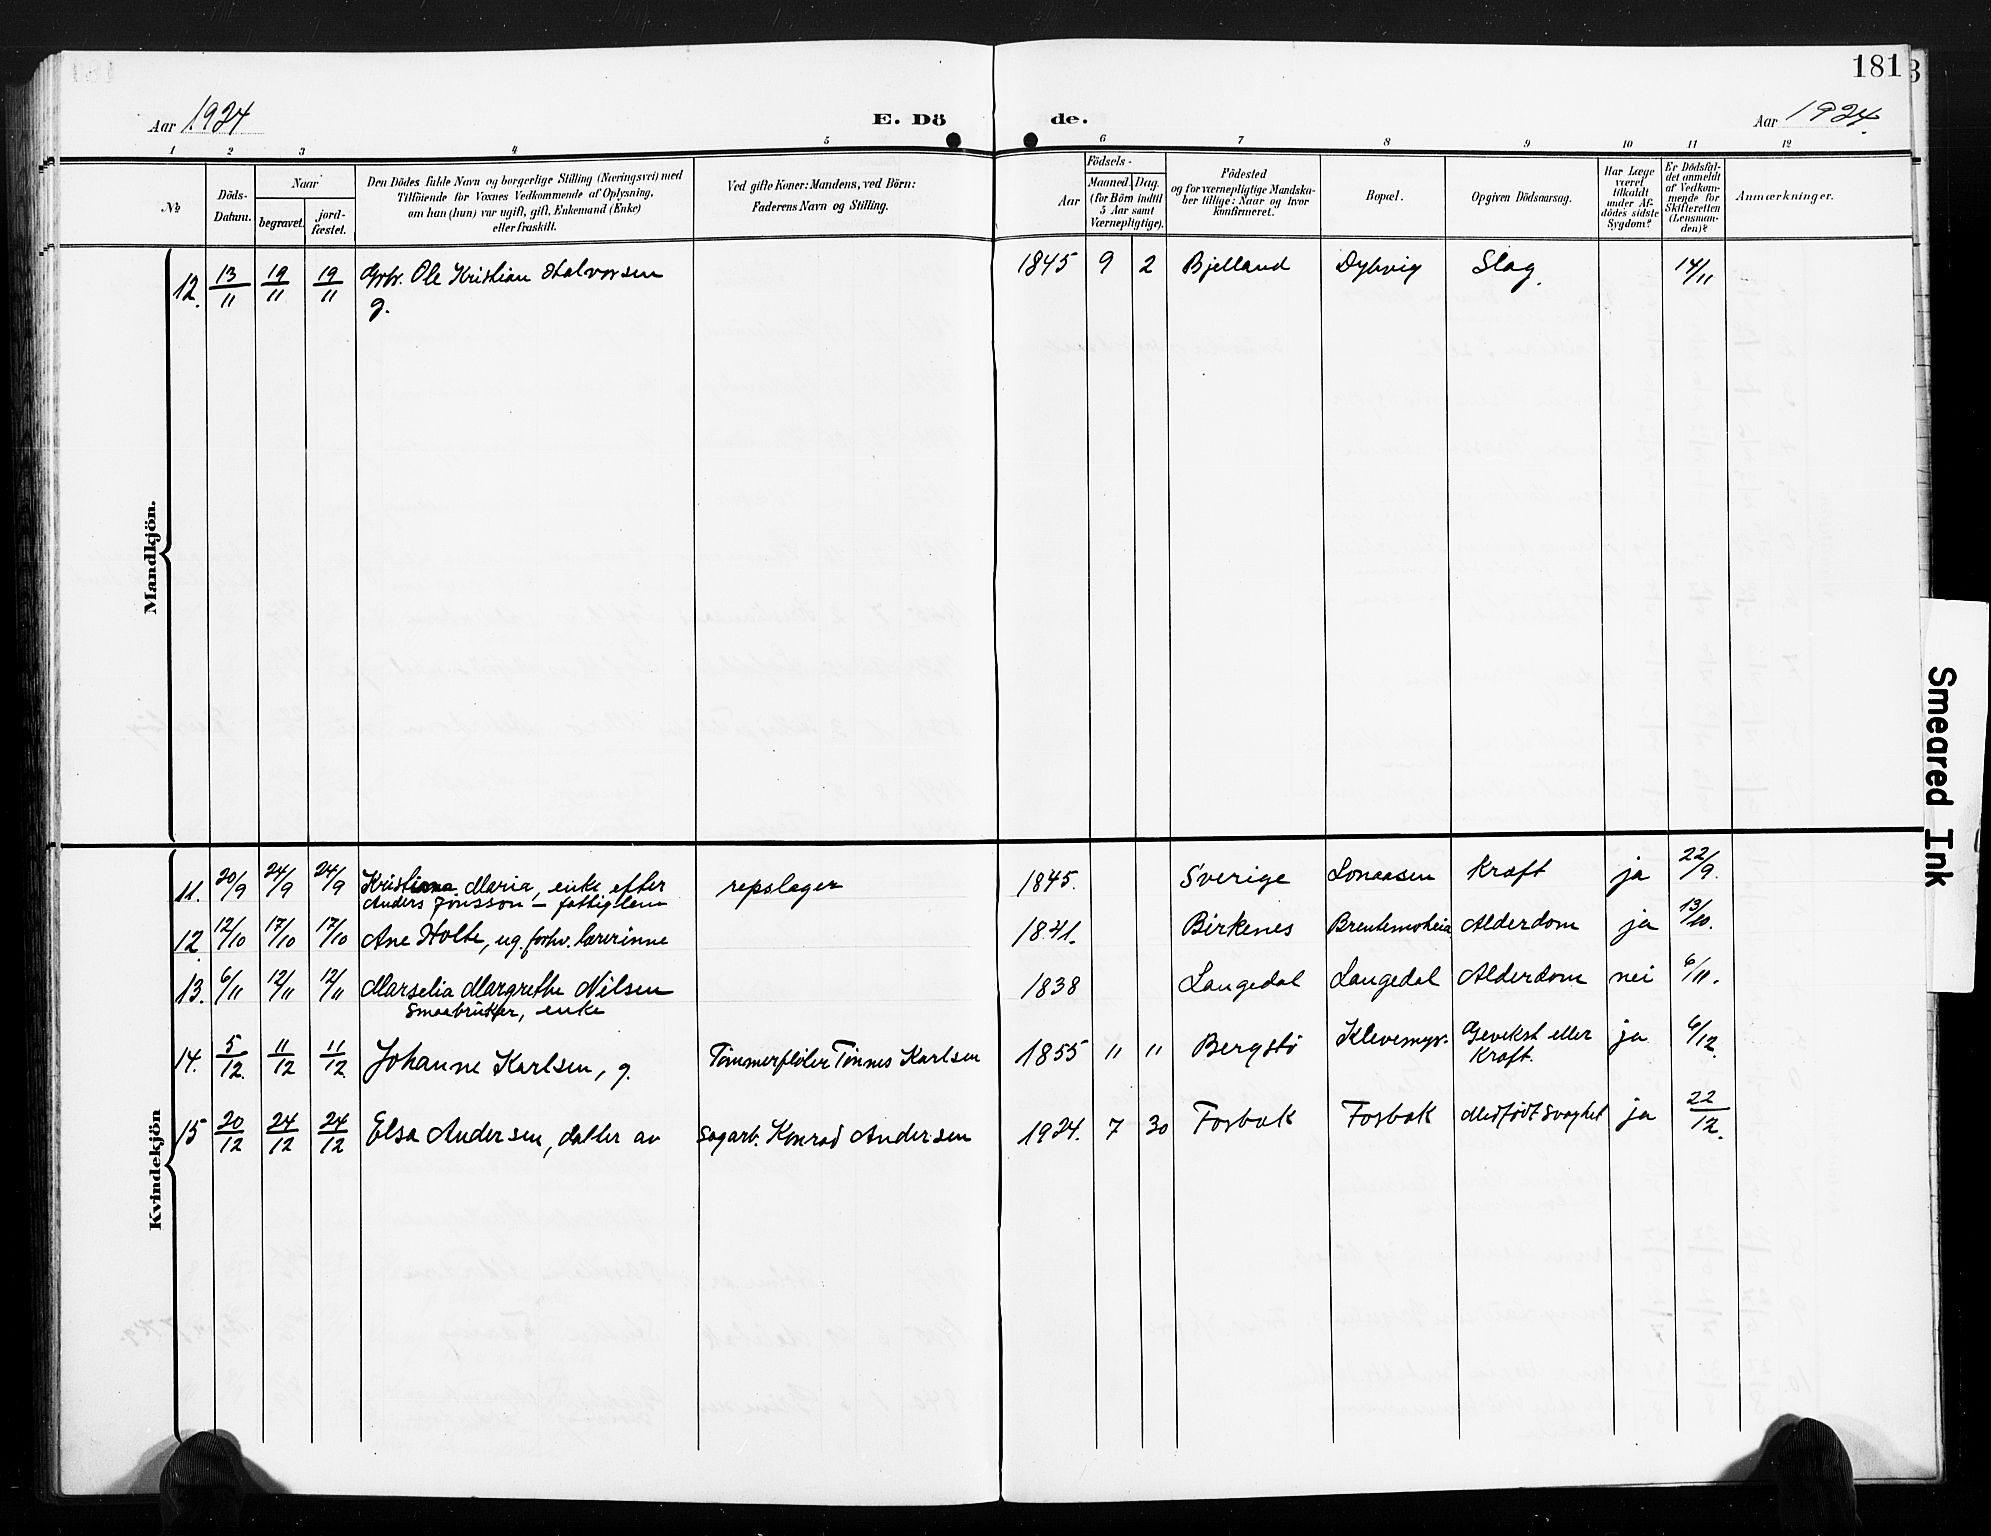 181
Aar 1924
E. Dö
de.
Aar 1924.
1 2 3 4 5 6 7 8 9 10 11 12
№
Döds-
Datum.
Naar
begravet.
jord-
fæstet.
Den Dödes fulde Navn og borgerlige Stilling (Næringsvei) med
Tilföiende for Voxnes Vedkommende af Oplysning,
om han (hun) var ugift, gift, Enkemand (Enke)
eller fraskilt.
Ved gifte Koner: Mandens, ved Börn:
Faderens Navn og Stilling.
Födsels-
Aar
Maaned. Dag.
(for Börn indtil
5 Aar samt
Værnepligtige).
Födested
og for værnepligtige Mandska-
ber tillige: Naar og hvor
konfirmeret.
Bopæl.
Opgiven Dödsaarsag.
Har Læge
været
tilkaldt
under Af-
dödes sidste
Sygdom?
Er Dödsfal-
det anmeldt
af Vedkom-
mende for
Skifteretten
(Lensman-
den)?
Anmærkninger.
Mandkjön.
12. 13/11 19/11 19/11 Grbr. Ole Kristian Halvorsen 1845 9 2 Bjelland Dybvig Slag. 14/11
g.
Kvindekjön
11. 20/9 24/9 24/9 Kristiana Maria, enke efter repslager 1845. Sverige Lonaasen Kræft ja 22/9.
Anders Jonsson – fattiglem
12. 12/10 17/10 17/10 Ane Holte, ug. forhv. lærerinne 1841. Birkenes Brentemoheia Alderdom ja 13/10.
13. 6/11 12/11 12/11 Marselia Margrethe Nilsen 1838 Langedal Langedal Alderdom nei 6/11.
Smaabruker, enke
14. 5/12. 11/12 11/12. Johanne Karlsen, g. Tømmerfløter Tønnes Karlsen 1855 " " Bergstø Klevemyr. Gevekst eller ja 6/12.
Kræft.
15 20/12 24/12 24/12 Elsa Andersen, datter av Sagarb. Konrad Andersen 1924. 7 30 Fosbæk Fosbæk Medfødt svaghet ja 22/12.
Smeared Ink